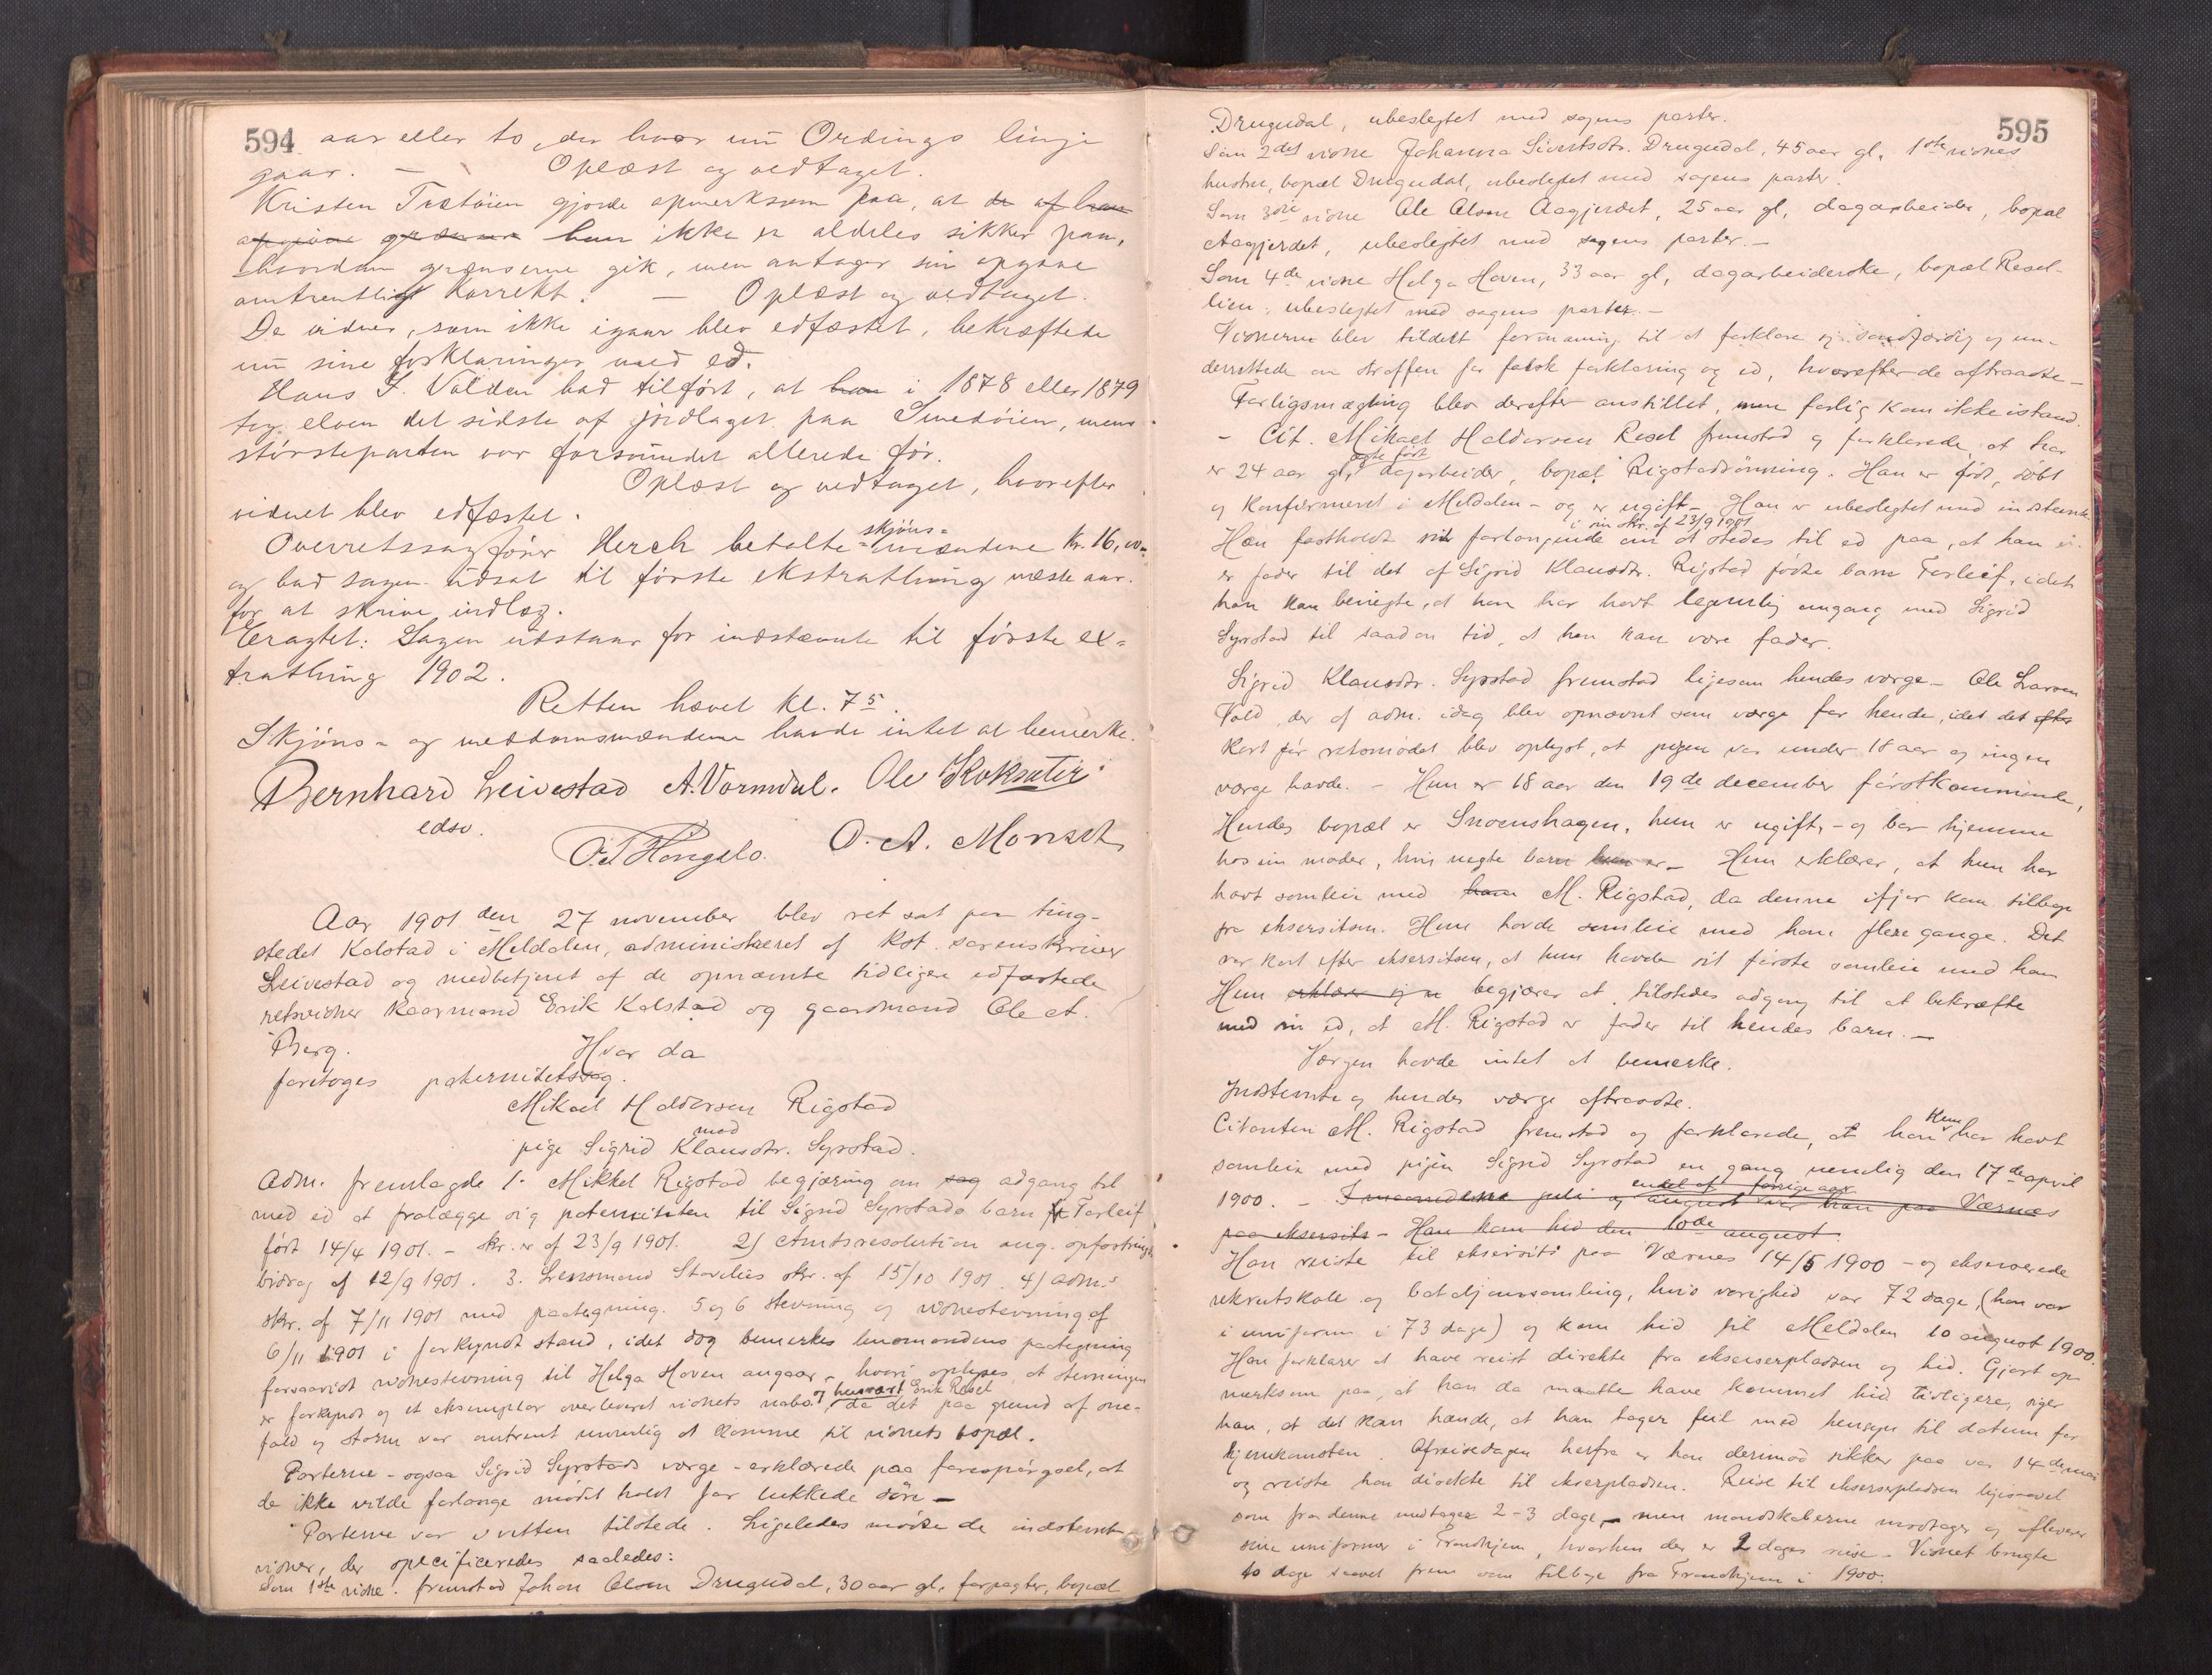 594 aar eller to, der hvor nu Ordings linje
gaar. — Oplæst og vedtaget.
Kristen Trætøien gjorde opmerksom paa, at de af ham
opgivne grænser han ikke er aldeles sikker paa,
hvordan grænserne gik, men antager sin opgave
omtrentligt korrekt. — Oplæst og vedtaget.
De vidner, som ikke igaar blev edfæstet, bekræftede
nu sine forklaringer med ed.
Hans J. Volden bad tilført, at han i 1878 eller 1879
tog elven det sidste af jordlaget paa Smedøien, mens
størsteparten var forsvundet allerede før.
Oplæst og vedtaget, hvorefter
vidnet blev edfæstet.
Overretssagfører Herch betalte skjøns-
mændene kr. 16,00
og bad sagen udsat til første ekstrathing næste aar.
for at skrive indlæg.
Eragtet: Sagen udstaar for indstevnte til første ex-
trathing 1902.
Retten hævet kl. 7 5.
Skjøns- og meddomsmændene havde intet at bemerke.
Bernhard Leivestad A. Vormdal. Ole Kokseter
edsv.
O. A. Monset
Aar 1901 den 27 november blev ret sat paa ting-
stedet Kalstad i Meldalen, administreret af kst. sorenskriver
Leivestad og medbetjent af de opnævnte tidligere edfæstede
retsvidner kaarmand Erik Kalstad og gaardmand Ole A.
Berg. Hvor da
foretoges paternitetssag.
Mikael Haldorsen Rigstad
mod
pige Sigrid Klausdtr. Syrstad.
Adm. fremlagde 1. Mikkel Rigstad begjæring om sag adgang til
med ed at fralægge sig paterniteten til Sigrid Syrstads barn Torleif
født 14/4 1901. – skr. er af 23/9 1901. 2) Amtsresolution ang. opfostrings
bidrag af 12/9 1901. 3. Lensmand Stavlies skr. af 15/10 1901. 4) adm.s
skr. af 7/11 1901 med paategning. 5 og 6 stevning og vidnestevning af
6/11 1901 i forkyndt stand, idet dog bemerkes lensmandens paategning
forsaavidt vidnestevning til Helga Hoven angaar – hvori oplyses, at stevningen
er forkyndt og et eksemplar overleveret vidnets nabo og husvært Erik Resel da det paa grund af sne-
fald og storm var omtrent umulig at komme til vidnets bopæl.
Parterne – ogsaa Sigrid Syrstads værge – erklærede paa forespørgsel, at
de ikke vilde forlange mødet holdt for lukkede døre –
Parterne var i retten tilstede. Ligeledes mødte de indstevnte
vidner, der specificeredes saaledes:
Som 1ste vidne: fremstod Johan Olsen Drugudal, 30 aar gl, forpagter, bopæl
595
Drugudal, ubeslegtet med sagens parter.
Som 2det vidne Johanna Sivertsdtr. Drugudal, 45 aar gl, 1ste vidnes
hustru, bopæl Drugudal, ubeslegtet med sagens parter.
Som 3die vidne Ole Olsen Aagjerdet, 25 aar gl, dagarbeider, bopæl
Aagjerdet, ubeslegtet med sagens parter. –
Som 4de vidne Helga Hoven, 33 aar gl, dagarbeiderske, bopæl Resel-
lien, ubeslegtet med sagens parter. –
Vidnerne blev tildelt formaning til at forklare sig sandfærdig og un-
derrettede om straffen for falsk forklaring og ed, hvorefter de aftraadte –
Forligsmægling blev derefter anstillet, men forlig kom ikke istand.
– Cit. Mikael Haldorsen Resel fremstod og forklarede, at han
er 24 aar gl, ægte født dagarbeider, bopæl Rigstadrønning. Han er født, døbt
og konfirmeret i Meldalen – og er ugift – Han er ubeslegtet med indstevnte
Han fastholdt sit i sin skr. af 23/9 1901 forlangende om at stedes til ed paa, at han ei
er fader til det af Sigrid Klausdtr. Rigstad fødte barn Torleif, idet
han kan benegte, at han har havt legemlig omgang med Sigrid
Syrstad til saadan tid, at han kan være fader.
Sigrid Klausdtr. Syrstad fremstod ligesom hendes værge – Ole Larsen
Vold, der af adm. idag blev opnævnt som værge for hende, idet det efter
kort før retsmødet blev oplyst, at pigen var under 18 aar og ingen
værge havde. – Hun er 18 aar den 19de december førstkommende,
Hendes bopæl er Snoenshagen, hun er ugift, – og bor hjemme
hos sin moder, hvis uegte barn hun er – Hun erklærer, at hun har
havt samleie med ham M. Rigstad, da denne ifjor kom tilbage
fra eksersitsen. Hun havde samleie med ham flere gange. Det
var kort efter eksersitsen, at hun havde sit første samleie med ham
Hun erklærer sig n begjærer at tilstedes adgang til at bekræfte
med sin ed, at M. Rigstad er fader til hendes barn. –
Værgen havde intet at bemerke.
Indstevnte og hendes værge aftraadte.
Citanten M. Rigstad fremstod og forklarede, at han kun har havt
samleie med pigen Sigrid Syrstad en gang nemlig den 17de april
1900. – I maanederne juli og endel af forrige aar august var han paa Værnes
paa eksersits – Han kom hid den 10de august.
Han reiste til eksersits paa Værnes 14/5 1900 – og ekserserede
rekrutskole og bataljonssamling, hvis varighed var 72 dage, (han var
i uniform i 73 dage) og kom hid til Meldalen 10 august 1900.
Han forklarer at have reist direkte fra ekserserpladsen og hid. Gjort op-
merksom paa, at han da maatte have kommet hid tidligere, siger
han, at det kan hænde, at han tager feil med hensyn til datum for
hjemkomsten. Afreisedagen herfra er han derimod sikker paa var 14de mai
og reiste han direkte til ekserpladsen. Reise til ekserserpladsen ligesaavel
som fra denne medtager 2-3 dage, – men mandskaberne modtager og afleverer
sine uniformer i Trondhjem, hvorhen der er 2 dages reise – Vidnet brugte
to dage saavel frem som tilbage fra Trondhjem i 1900.